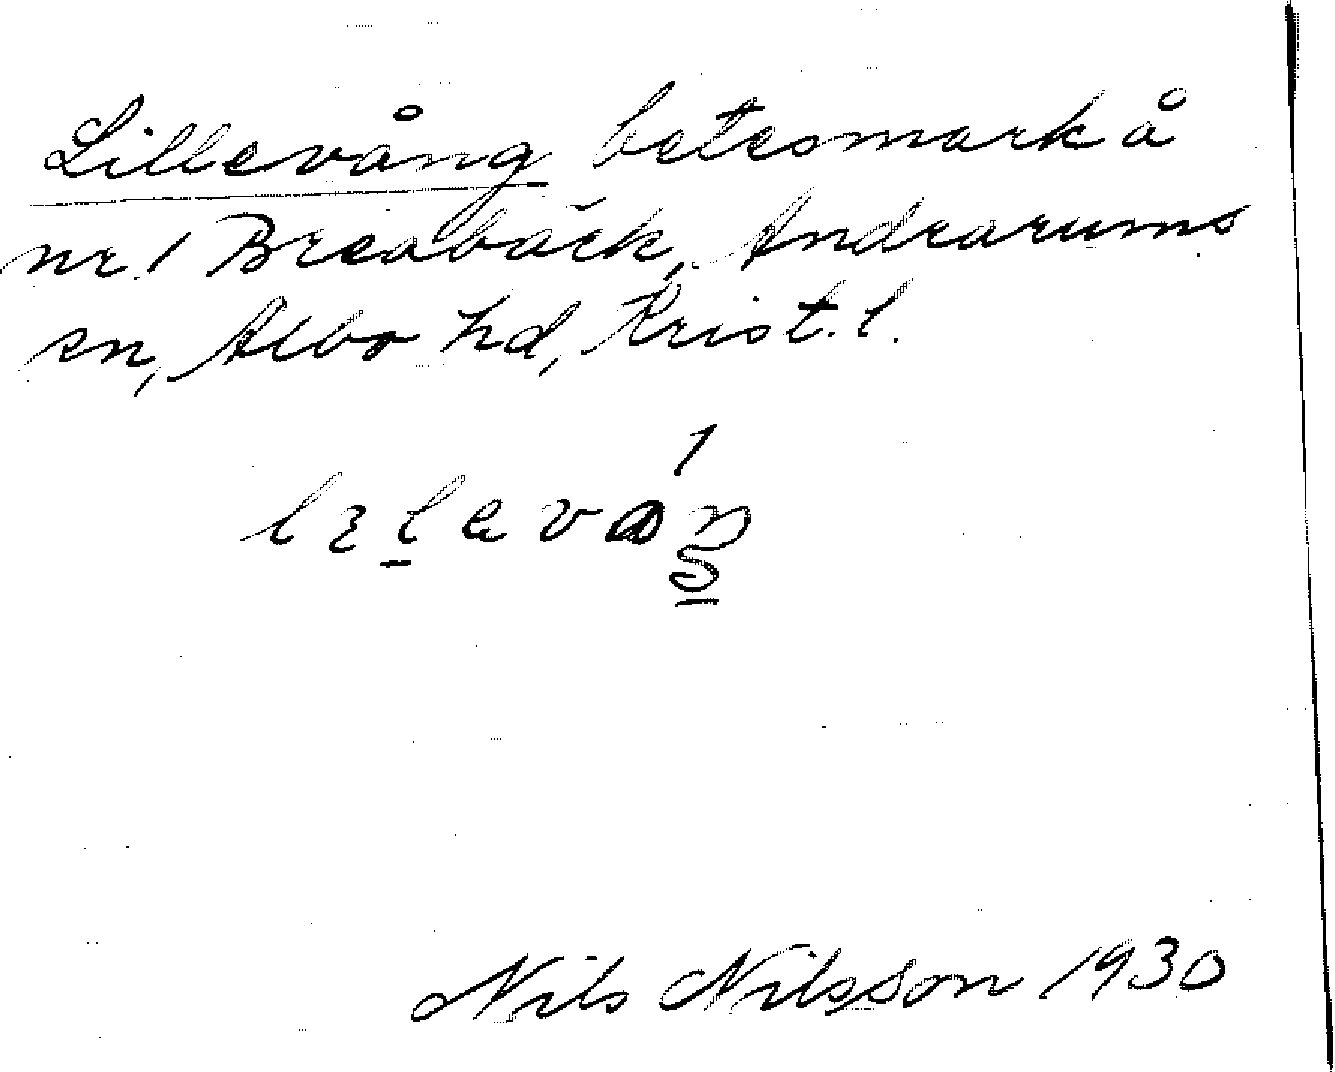 Lillevång betesmark å
nr 1 Breabäck, Andrarums
sn, Albo hd, Krist. l.
Nils Nilsson 1930